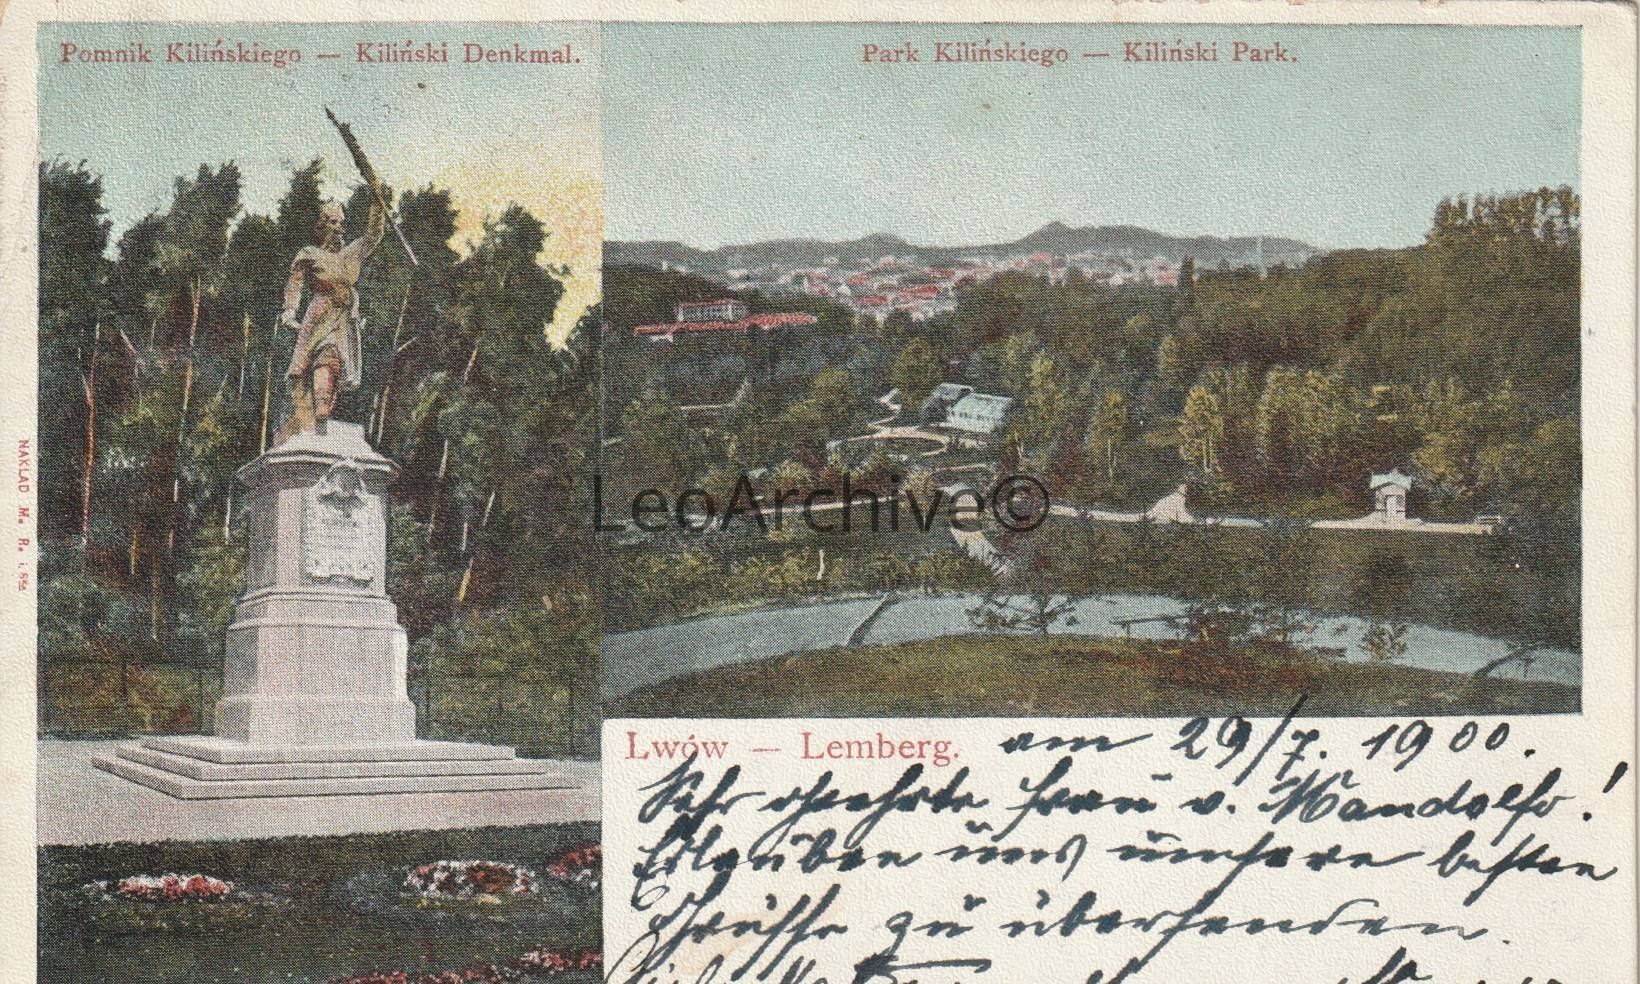 Pomnik Kilińskiego — Kiliński Denkmal.
Park Kilińskiego — Kiliński Park.
NAKŁAD M. R. i Ska
LeoArchive©
Lwów — Lemberg. am 29/7. 1900.
Sehr geehrte Frau v. Mandolfo!
Erlauben uns unsere besten
Grüsse zu übersenden.